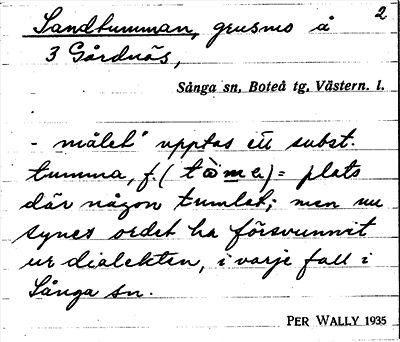 2
Sandtumman, grusmo å
3 Gårdnäs,
Sånga sn, Boteå tg, Västern. l.
- målet" upptas ett subst.
tumma, f. (tòma) = plats
där någon tumlat; men nu
synes ordet ha försvunnit
ur dialekten, i varje fall i
Sånga sn.
PER WALLY 1935